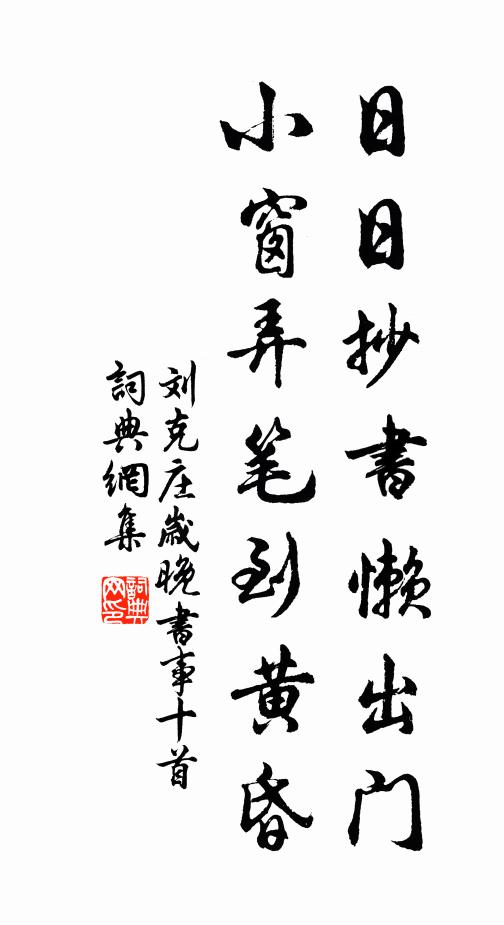 日日抄書懶出門
小窗弄笔到黄昏
刘克庄歲晚書事十首
詞典網集
詞典网印